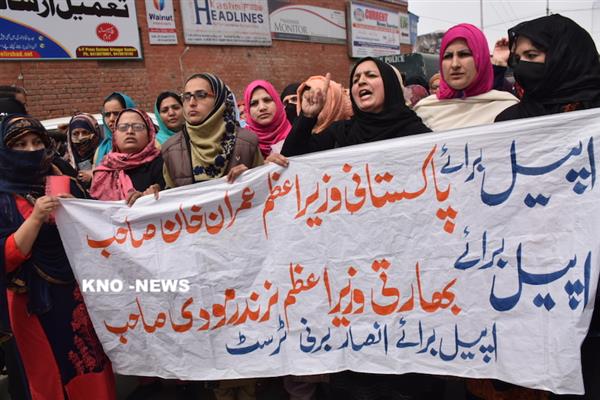 تعمیل ارشاد
Walnut
HEADLINES
MONITOR
اپیل برائے پاکستانی وزیراعظم عمران خان صاحب
اپیل برائے بھارتی وزیراعظم نرندر مودی صاحب
اپیل برائے انصار برنی ٹرسٹ
KNO -NEWS